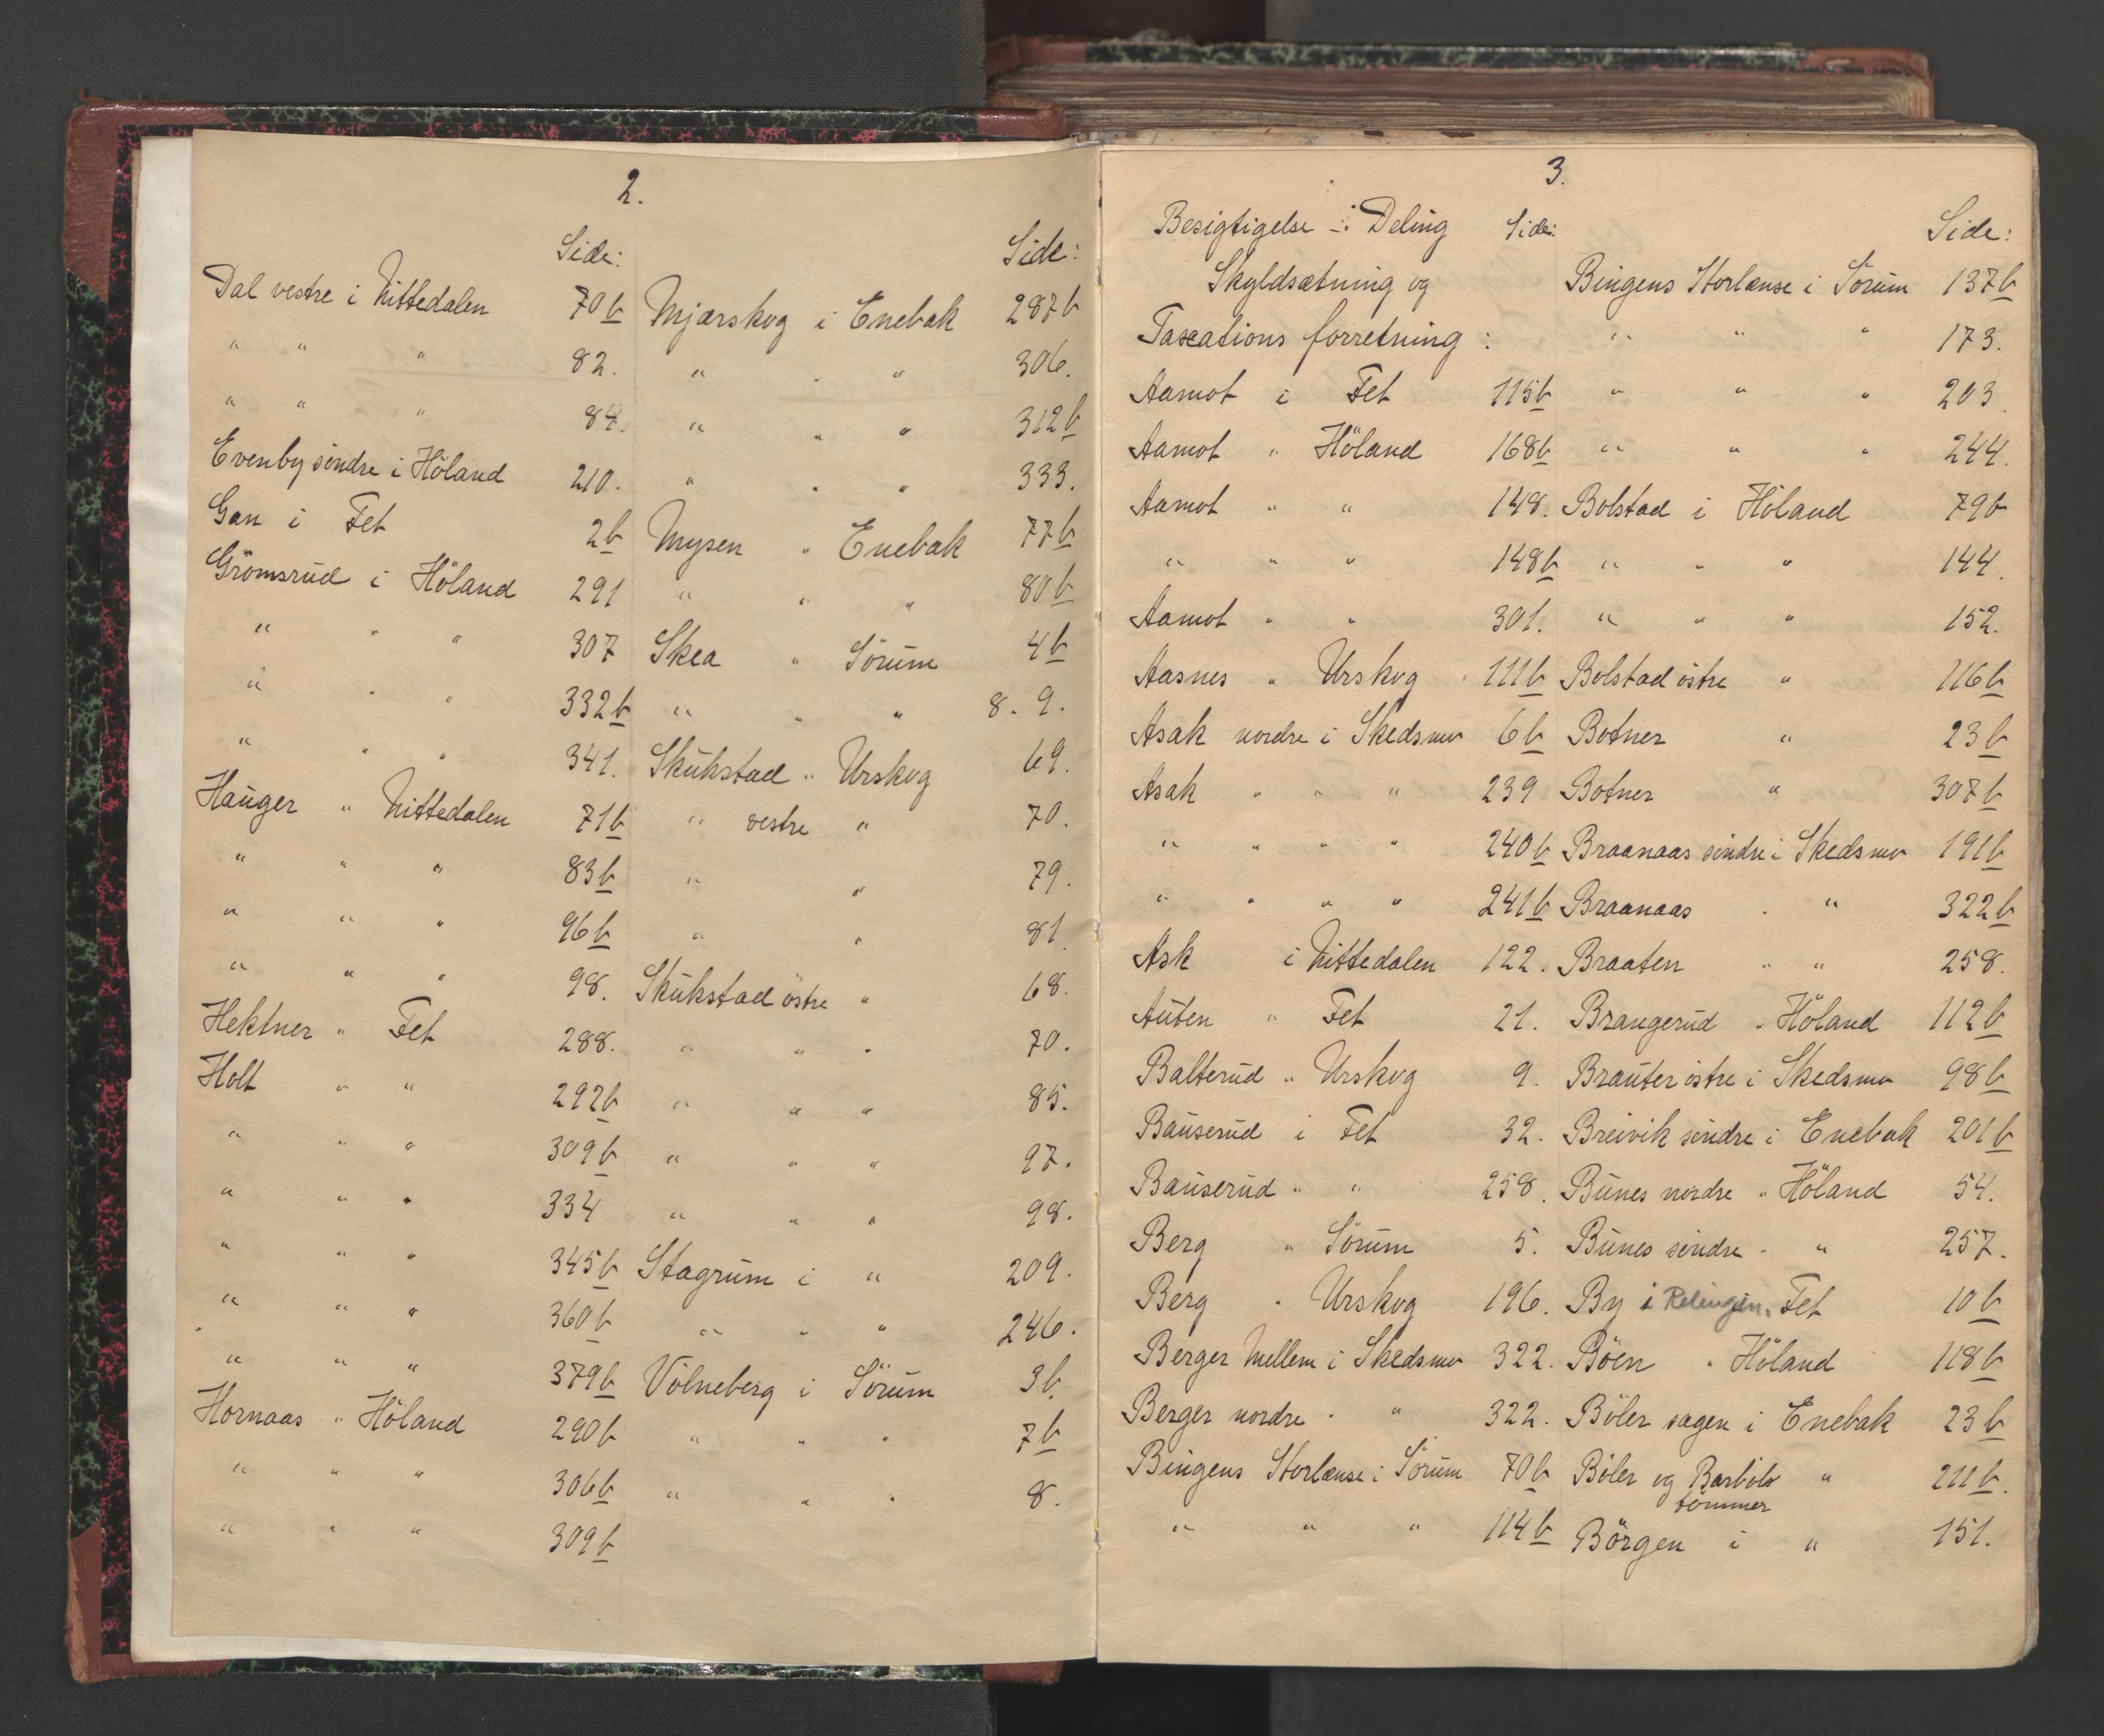 2.
Side:
Dal vestre i Nittedalen 70b
" " " 82.
" " " 84.
Evenby søndre i Höland 210.
Gan i Fet 2b
Grömsrud i Höland 291
" " " 307
" " " 332b
" " " 341.
Hauger " Nittedalen 71b
" " " 83b
" " " 96b
" " " 98.
Hektner " Fet 288.
Holt " " 292b
" " " 309b
" " " 334
" " " 345b
" " " 360b
" " " 379b
Hornaas " Höland 290b
" " " 306b
" " " 309b
Side:
Mjærskog i Enebak 287b
" " " 306.
" " " 312b
" " " 333.
Mysen " Enebak 77b
" " " 80b
Skea " Sörum 4b
" " " 8. 9.
Skukstad " Urskog 69.
" vestre " 70.
" " 79.
" " 81.
Skukstad östre " 68.
" " " 70.
" " " 85.
" " " 97.
" " " 98.
Stagrum i " 209.
" " " 246.
Völneberg i Sörum 3b.
" " " 7b
" " " 8.
3.
Besigtigelse ‐:‐ Deling Side:
Skyldsætning og
Taxations forretning :
Aamot i Fet 115b
Aamot " Höland 168b
Aamot " " 148.
" " " 148b
Aamot " " 301.
Aasnes " Urskog 111b
Asak nordre i Skedsmo 6b
Asak " " " 239
" " " " 240b
" " " " 241b
Ask i Nittedalen 122.
Auten " Fet 21.
Balterud " Urskog 9.
Bauserud i Fet 32.
Bauserud " " 258.
Berg " Sörum 5.
Berg " Urskog 196.
Berger Mellem i Skedsmo 322.
Berger nordre " " 322.
Bingens Storlænse i Sörum 70b
" " " 114b
Side:
Bingens Storlænse i Sörum 137b
" " " 173.
" " " 203.
" " " 244.
Bolstad i Höland 79b
" " " 144.
" " " 152.
Bolstad östre " 116b
Botner " 23b
Botner " 307b
Braanaas söndre i Skedsmo 191b
Braanaas " " 322b
Braaten " " 258.
Brangerud " Höland 112b
Brauter östre i Skedsmo 98b
Breivik söndre i Enebak 201b
Bunes nordre " Höland 54.
Bunes söndre " " 257.
By i Relingen. Fet 10b
Böen " Höland 118b
Böler sagen i Enebak 23b
Böler og Barböl " 211b.
tömmer
Börgen i " 151.